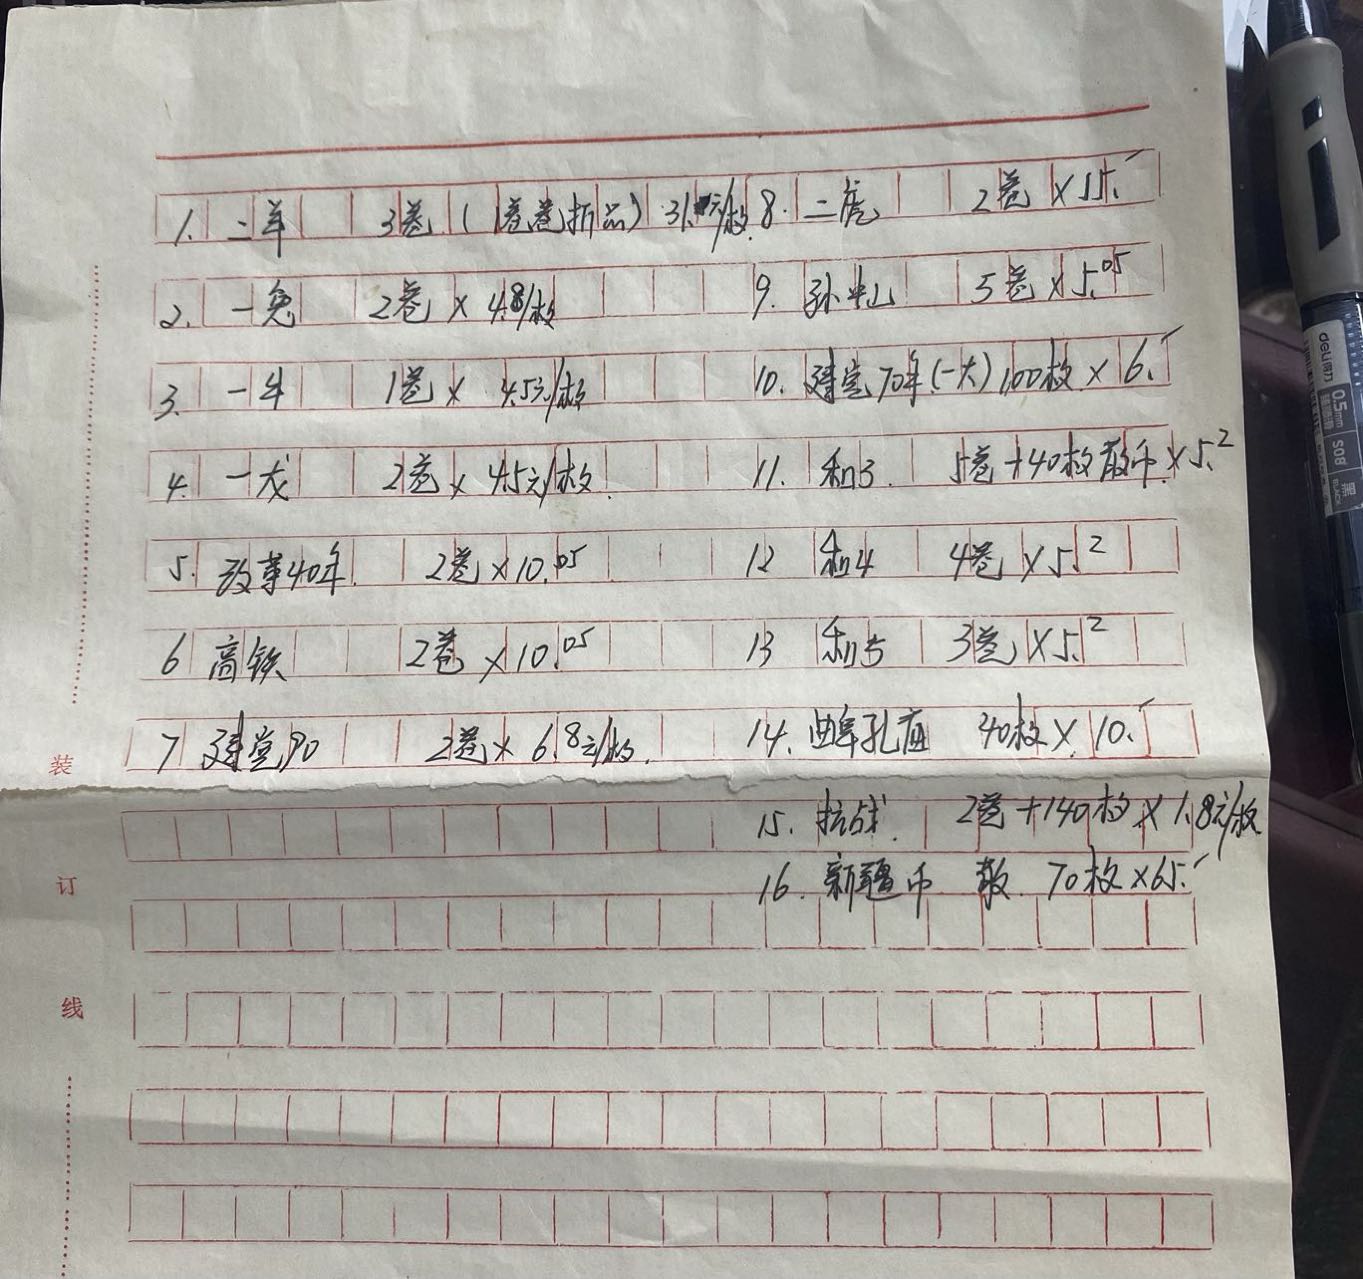 1. 二羊 3卷（1卷卷拆品）31.元/枚
2. 一兔 2卷 × 4.8/枚
3. 一牛 1卷 × 4.5元/枚
4. 一龙 2卷 × 4.5元/枚.
5. 改革40年. 2卷 × 10.05
6 高铁 2卷 × 10.05
7 建党90 2卷 × 6.8元/枚.
8. 二虎 2卷 × 15.
9. 孙中山 5卷 × 5.05
10. 建党70年(一大) 100枚 × 6.
11. 和3. 5卷+40枚散币 × 5.2
12 和4 4卷 × 5.2
13 和5 3卷 × 5.2
14. 曲阜孔庙 40枚 × 10.
15. 抗战. 2卷+140枚 × 1.8元/枚
16. 新疆币 散. 70枚 × 65.
装
订
线
deli得力
0.5mm
S08
黑
BLACK